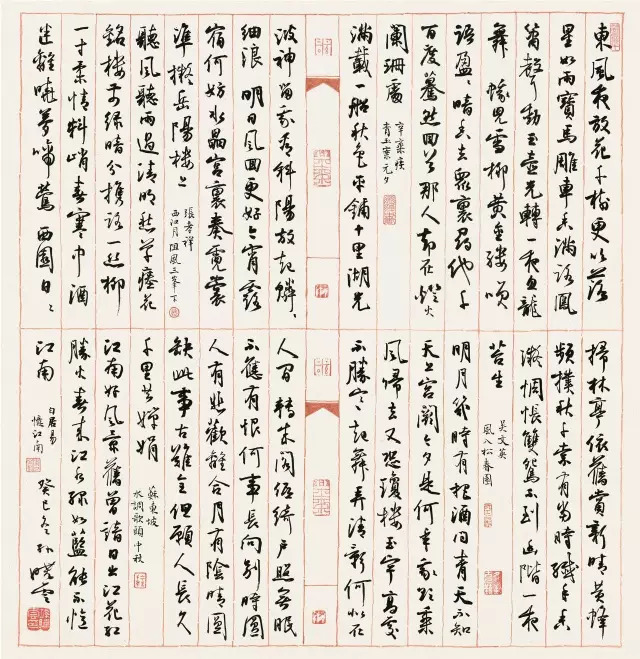 東風夜放花千樹更吹落
星如雨寶馬雕車香滿路鳳
簫聲動玉壺光轉一夜魚龍
舞蛾兒雪柳黃金縷笑
語盈盈暗香去眾裏尋他千
百度驀然回首那人卻在燈火
闌珊處
辛棄疾
青玉案元夕
滿載一船秋色平鋪十里湖光
波神留我看斜陽放起鱗鱗
細浪明日風回更好今宵露
宿何妨水晶宮裏奏霓裳
準擬岳陽樓上
張孝祥
西江月阻風三峯下
聽風聽雨過清明愁草瘞花
銘樓前綠暗分攜路一絲柳
一寸柔情料峭春寒中酒
迷離曉夢啼鶯西園日日
掃林亭依舊賞新晴黃蜂
頻撲秋千索有當時纖手香
凝惆悵雙鴛不到幽階一夜
苔生
吳文英
風入松春園
明月幾時有把酒問青天不知
天上宮闕今夕是何年我欲乘
風歸去又恐瓊樓玉宇高處
不勝寒起舞弄清影何似在
人間轉朱閣低綺戶照無眠
不應有恨何事長向別時圓
人有悲歡離合月有陰晴圓
缺此事古難全但願人長久
千里共嬋娟
蘇東坡
水調歌頭中秋
江南好風景舊曾諳日出江花紅
勝火春來江水綠如藍能不憶
江南
白居易
憶江南
癸巳冬初曉雲